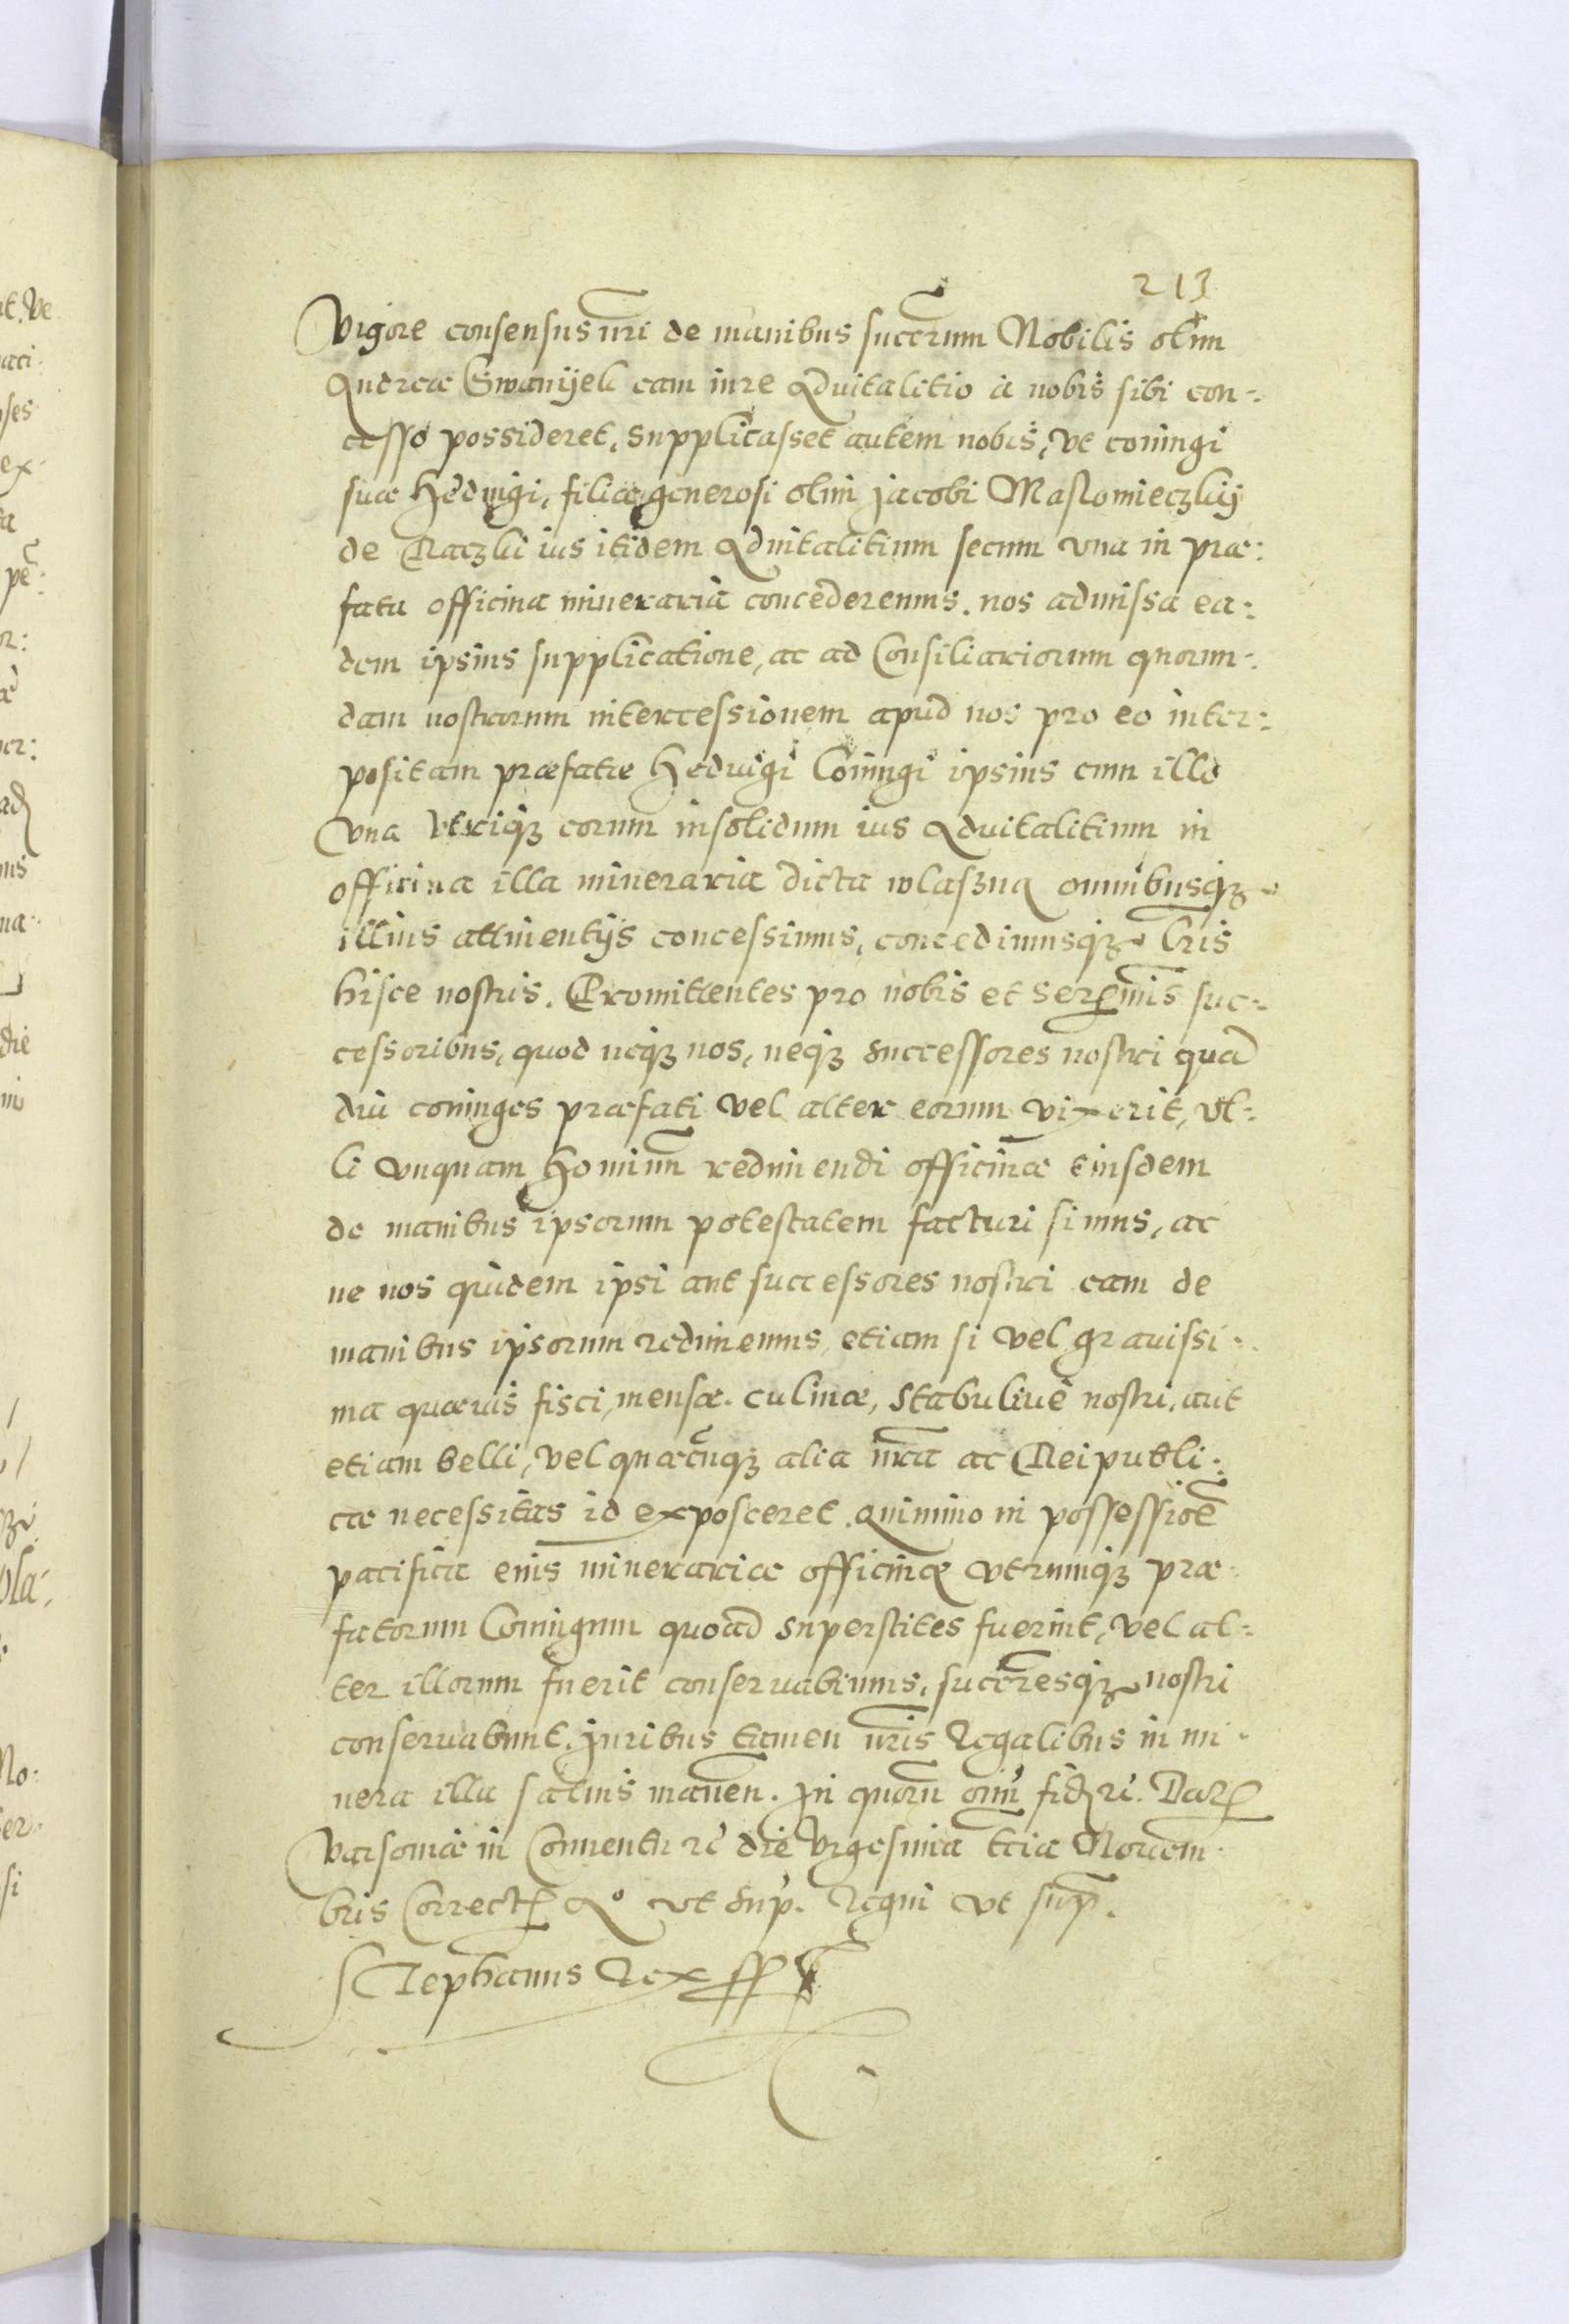 213
Vigore consensus nri de manibus succrum Nobilis olim
Andreæ Swanijeli eam iure Advitalitio à nobis sibi con-
cesso possideret, supplicasset autem nobis, vt coniugi
suæ Hedvigi, filiæ generosi olim Jacobi Maslomieczkij
de Raczki ius itidem Advitalitium secum vna in præ:
fata officina mineraria concederemus. nos admissa ea:
dem ipsius supplicatione, ac ad Consiliariorum quorun-
dam nostrorum intercessionem apud nos pro eo inter:
positam præfatæ Hedvigi Coniugi ipsius cum illo
Vna vtriqꝫ eorum insolidum ius Advitalitium in
officina illa mineraria dicta wlaszna omnibusqꝫ
illius attinentijs concessimus, concedimusqꝫ lris
hisce nostris. Promittentes pro nobis et Serẽmis suc-
cessoribus, quod neqꝫ nos, neqꝫ successores nostri quā
diu coniuges præfati vel alter eorum vixerit, vl-
li vnquam hominũ redimendi officinæ eiusdem
de manibus ipsorum potestatem facturi simus, ac
ne nos quidem ipsi aut successores nostri eam de
manibus ipsorum redimemus, etiam si vel grauissi-
ma quævis fisci, mensæ. culinæ, stabuliuè nostri, aut
etiam belli, vel quæcũqꝫ alia nra ac Reipubli:
cæ necessitas id exposceret. Quinimo in possessiõe
pacifica eius minerariæ officinæ vtrumqꝫ præ-
fatorum Coniugum quoad superstites fuerint, vel al-
ter illorum fuerit conservabimus, succresqꝫ nostri
conservabunt. Juribus tamen nris Regalibus in mi-
nera illa salvis maneñ. In quorũ oim̃ fidẽ rc̃. Dat
Varsoviæ in Conventu rc̃ die Vigesima tcia Novem-
bris Correct Aº vt sup. Regni vt sup.
Stephanus Rex sst